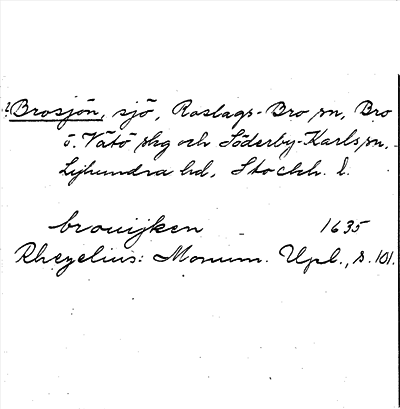 ? Brosjön, sjö, Roslags-Bro sn, Bro
o. Vätö skg och Söderby-Karls sn,
Lyhundra hd, Stockh. l.
brouijken 1635
Rhezelius: Monum. Upl., s. 101.